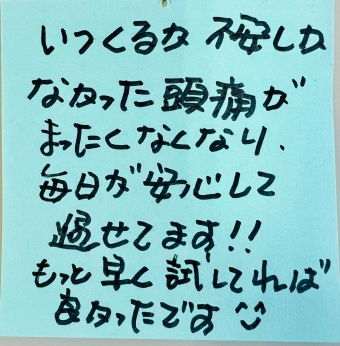 いつくるか不安しか
なかった頭痛が
まったくなくなり、
毎日が安心して
過せてます!!
もっと早く試してれば
良かったです